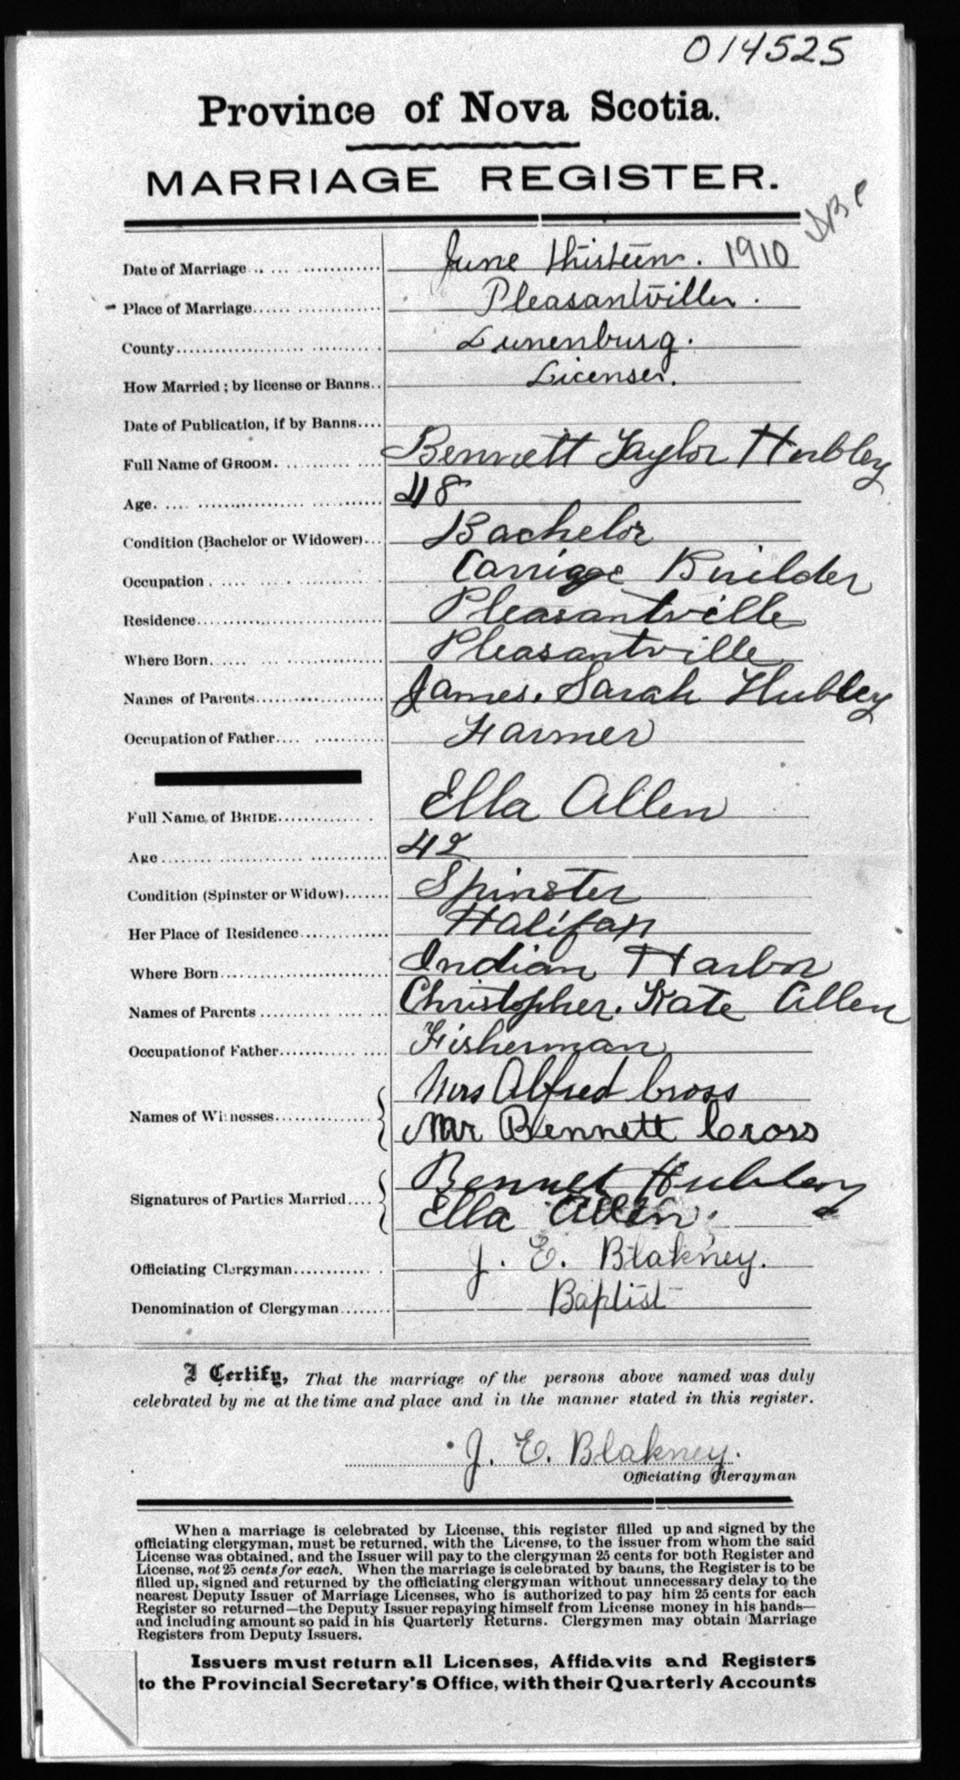 014525
Province of Nova Scotia.
MARRIAGE REGISTER.
Date of Marriage June thirteen. 1910
Place of Marriage Pleasantville.
County Lunenburg.
How Married; by license or Banns License.
Date of Publication, if by Banns
Full Name of GROOM. Bennett Taylor Hubley
Age. 48
Condition (Bachelor or Widower) Bachelor
Occupation Carriage Builder
Residence Pleasantville
Where Born Pleasantville
Names of Parents James. Sarah Hubley
Occupation of Father Farmer
Full Name of BRIDE Ella Allen
Age 42
Condition (Spinster or Widow) Spinster
Her Place of Residence Halifax
Where Born Indian Harbor
Names of Parents Christopher. Kate Allen
Occupation of Father Fisherman
Names of Witnesses Mrs Alfred Cross
Mr Bennett Cross
Signatures of Parties Married Bennet Hubley
Ella Allen.
Officiating Clergyman J. E. Blakney.
Denomination of Clergyman Baptist
I Certify, That the marriage of the persons above named was duly
celebrated by me at the time and place and in the manner stated in this register.
J. E. Blakney.
Officiating Clergyman
When a marriage is celebrated by License, this register filled up and signed by the
officiating clergyman, must be returned, with the License, to the issuer from whom the said
License was obtained, and the Issuer will pay to the clergyman 25 cents for both Register and
License, not 25 cents for each. When the marriage is celebrated by banns, the Register is to be
filled up, signed and returned by the officiating clergyman without unnecessary delay to the
nearest Deputy Issuer of Marriage Licenses, who is authorized to pay him 25 cents for each
Register so returned—the Deputy Issuer repaying himself from License money in his hands—
and including amount so paid in his Quarterly Returns. Clergymen may obtain Marriage
Registers from Deputy Issuers.
Issuers must return all Licenses, Affidavits and Registers
to the Provincial Secretary's Office, with their Quarterly Accounts